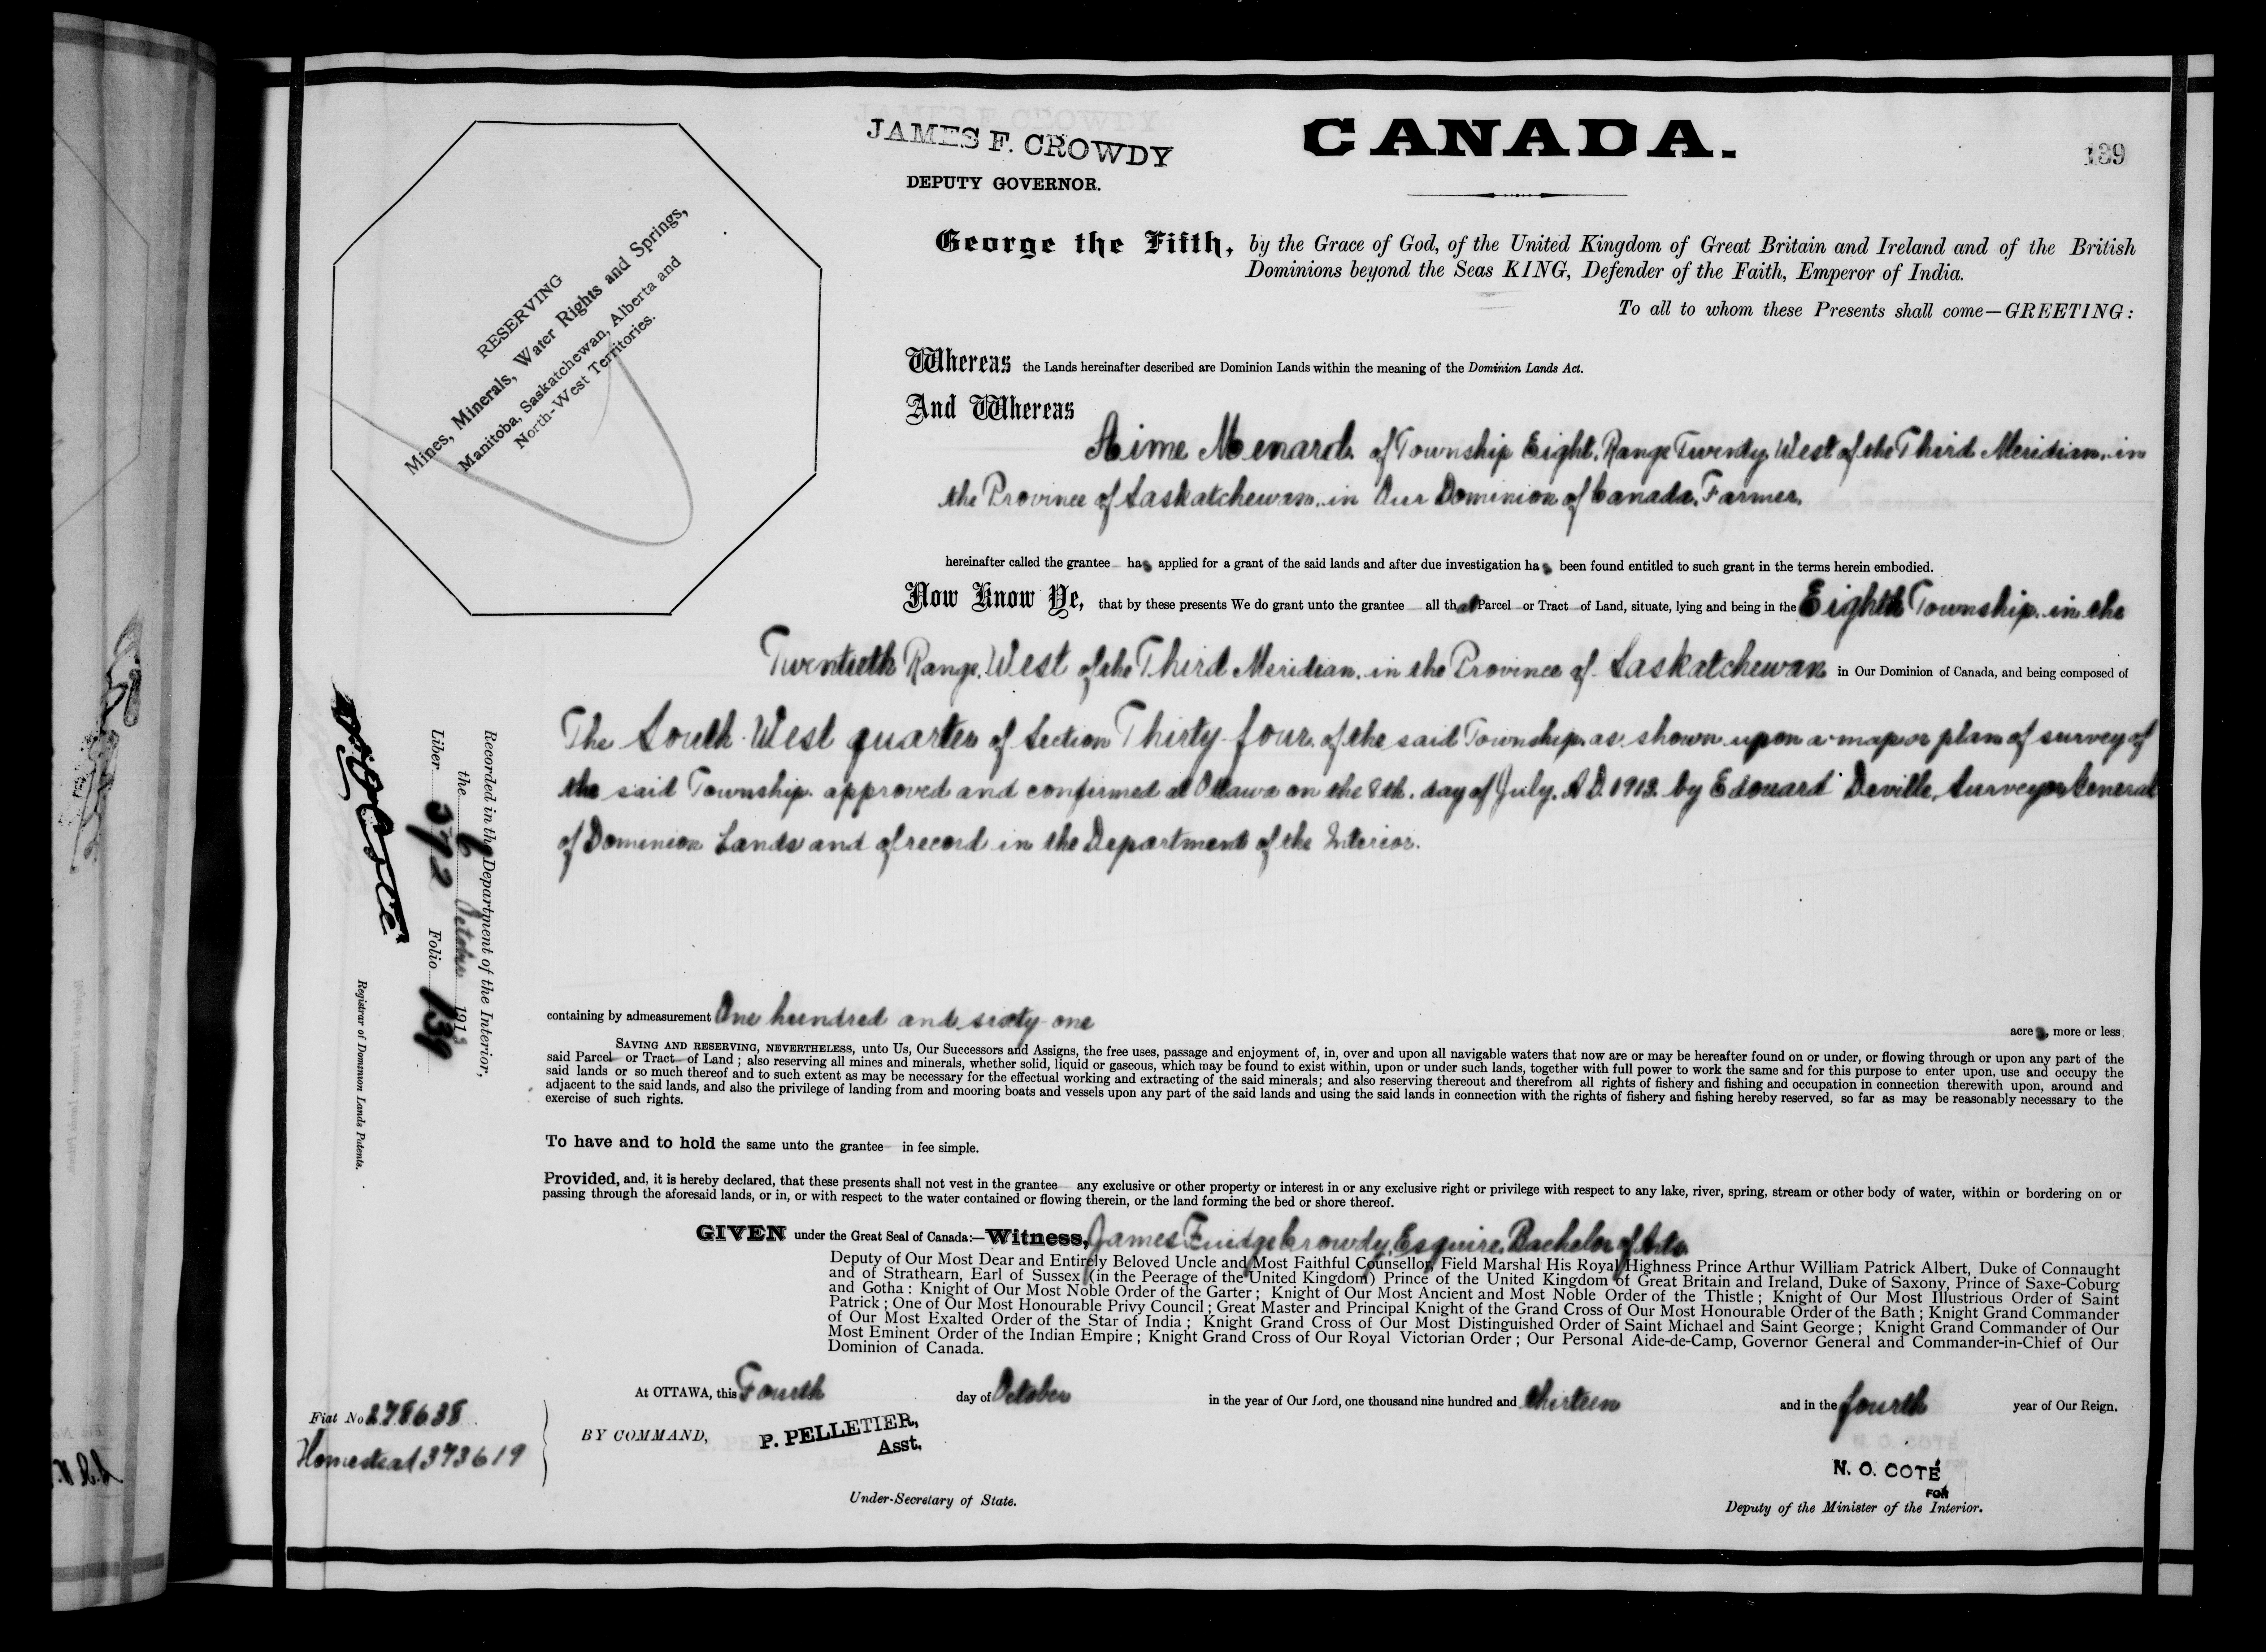 JAMES F. CROWDY
DEPUTY GOVERNOR.
CANADA.
139
RESERVING
Mines, Minerals, Water Rights and Springs,
Manitoba, Saskatchewan, Alberta and
North-West Territories.
George the Fifth, by the Grace of God, of the United Kingdom of Great Britain and Ireland and of the British
Dominions beyond the Seas KING, Defender of the Faith, Emperor of India.
To all to whom these Presents shall come—GREETING:
Whereas the Lands hereinafter described are Dominion Lands within the meaning of the Dominion Lands Act.
And Whereas
Aime Menard. of Township Eight, Range Twenty, West of the Third Meridian, in
the Province of Saskatchewan, in Our Dominion of Canada, Farmer,
hereinafter called the grantee has applied for a grant of the said lands and after due investigation has been found entitled to such grant in the terms herein embodied.
Now Know Ye, that by these presents We do grant unto the grantee all that Parcel or Tract of Land, situate, lying and being in the Eighth Township, in the
Twentieth Range, West of the Third Meridian, in the Province of Saskatchewan in Our Dominion of Canada, and being composed of
The South West quarter of Section Thirty-four, of the said Township, as shown upon a map or plan of survey of
the said Township approved and confirmed at Ottawa on the 8th. day of July, A.D. 1912 by Edouard Deville, Surveyor General
of Dominion Lands and of record in the Department of the Interior.
containing by admeasurement One hundred and sixty-one
acres, more or less.
SAVING AND RESERVING, NEVERTHELESS, unto Us, Our Successors and Assigns, the free uses, passage and enjoyment of, in, over and upon all navigable waters that now are or may be hereafter found on or under, or flowing through or upon any part of the
said Parcel or Tract of Land; also reserving all mines and minerals, whether solid, liquid or gaseous, which may be found to exist within, upon or under such lands, together with full power to work the same and for this purpose to enter upon, use and occupy the
said lands or so much thereof and to such extent as may be necessary for the effectual working and extracting of the said minerals; and also reserving thereout and therefrom all rights of fishery and fishing and occupation in connection therewith upon, around and
adjacent to the said lands, and also the privilege of landing from and mooring boats and vessels upon any part of the said lands and using the said lands in connection with the rights of fishery and fishing hereby reserved, so far as may be reasonably necessary to the
exercise of such rights.
To have and to hold the same unto the grantee in fee simple.
Provided, and, it is hereby declared, that these presents shall not vest in the grantee any exclusive or other property or interest in or any exclusive right or privilege with respect to any lake, river, spring, stream or other body of water, within or bordering on or
passing through the aforesaid lands, or in, or with respect to the water contained or flowing therein, or the land forming the bed or shore thereof.
GIVEN under the Great Seal of Canada:—Witness, James Fuidge Crowdy, Esquire, Bachelor of Arts
Deputy of Our Most Dear and Entirely Beloved Uncle and Most Faithful Counsellor, Field Marshal His Royal Highness Prince Arthur William Patrick Albert, Duke of Connaught
and of Strathearn, Earl of Sussex (in the Peerage of the United Kingdom) Prince of the United Kingdom of Great Britain and Ireland, Duke of Saxony, Prince of Saxe-Coburg
and Gotha: Knight of Our Most Noble Order of the Garter; Knight of Our Most Ancient and Most Noble Order of the Thistle; Knight of Our Most Illustrious Order of Saint
Patrick; One of Our Most Honourable Privy Council; Great Master and Principal Knight of the Grand Cross of Our Most Honourable Order of the Bath; Knight Grand Commander
of Our Most Exalted Order of the Star of India; Knight Grand Cross of Our Most Distinguished Order of Saint Michael and Saint George; Knight Grand Commander of Our
Most Eminent Order of the Indian Empire; Knight Grand Cross of Our Royal Victorian Order; Our Personal Aide-de-Camp, Governor General and Commander-in-Chief of Our
Dominion of Canada.
At OTTAWA, this Fourth day of October in the year of Our Lord, one thousand nine hundred and thirteen and in the fourth year of Our Reign.
BY COMMAND,
P. PELLETIER,
Asst.
Under-Secretary of State.
N. O. COTÉ
FOR
Deputy of the Minister of the Interior.
Fiat No 278638
Homestead 373619
Recorded in the Department of the Interior,
the 6 October 1913
Liber 372 Folio 139
N O Coté
Registrar of Dominion Lands Patents.